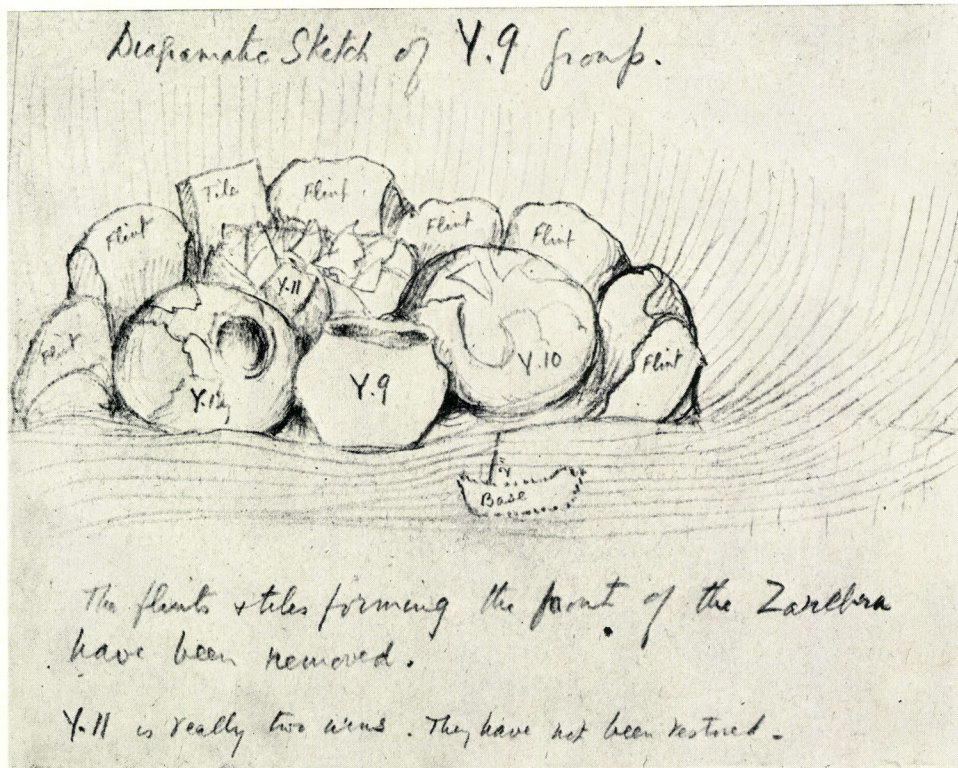 Diagramatic Sketch of Y.9 group.
Tile
Flint
Flint
Flint
Flint
Y.11
Flint
Y.9
Y.10
Flint
Base
The flints + tiles forming the front of the Zareebra
have been removed.
Y.11 is really two urns. They have not been restored.